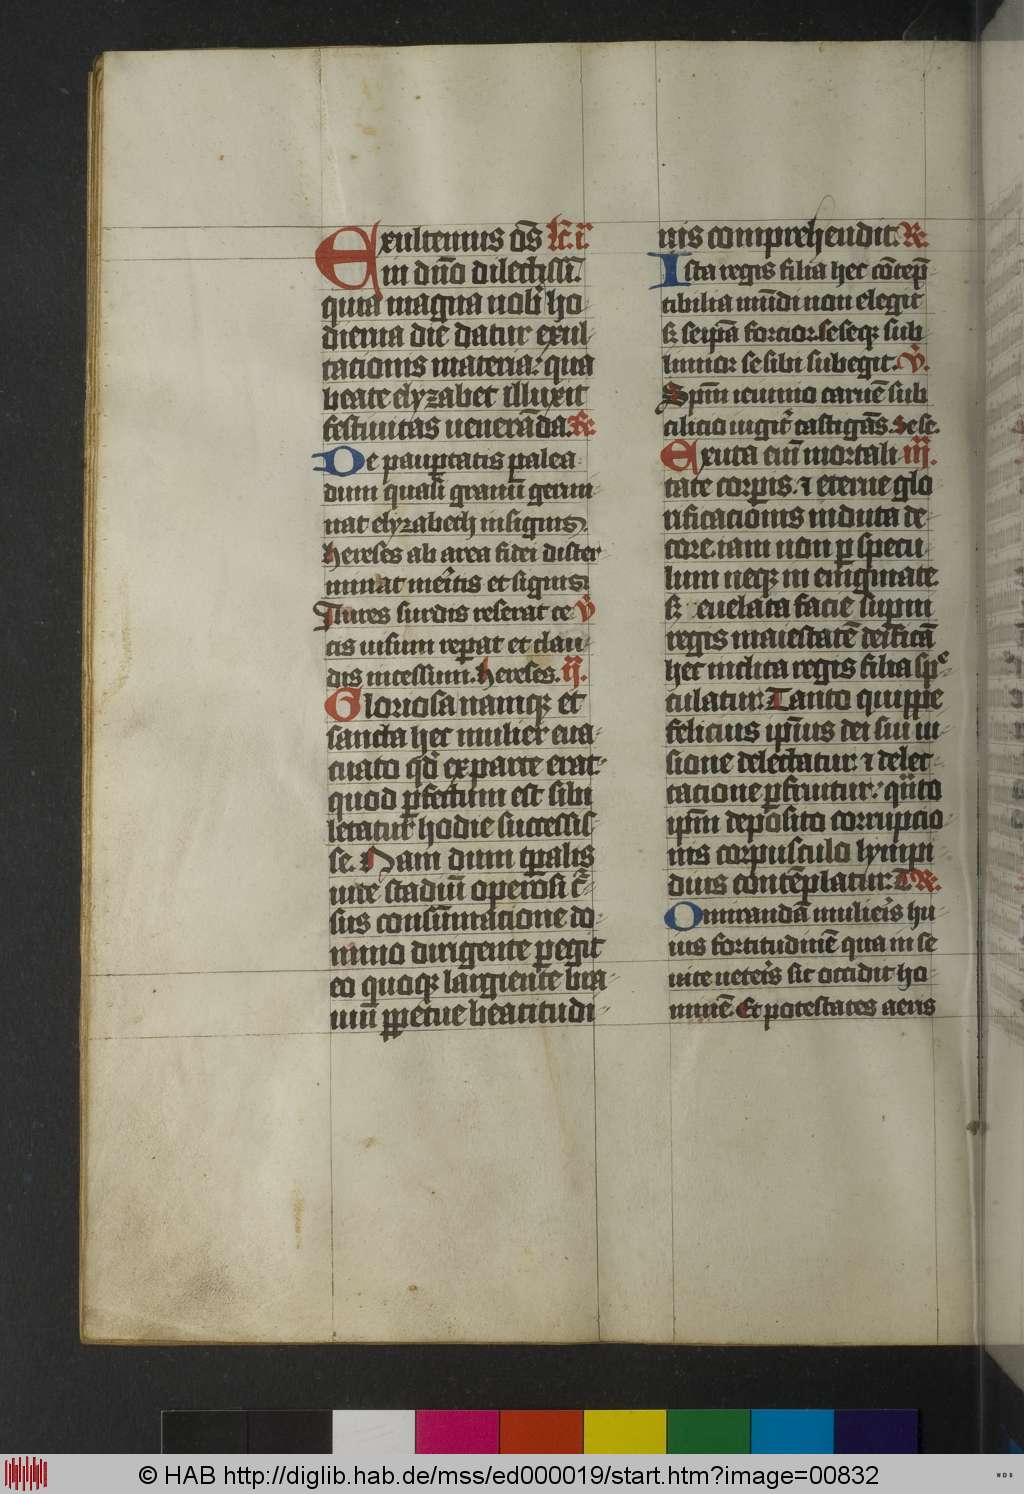 Exultemus om̄s Lc̄. i.
in dn̄o dilectissīi.
quia magna nobis ho
dierna die datur exul
tacionis materia: qua
beate elyzabet illuxit
festiuitas uenerāda. R̄.
De paup̄tatis palea
dum quasi granū germ
nat elyzabeth insignis
hereses ab area fidei dister
minat mēritis et signis
Aures surdis reserat ce V̄
cis uisum rep̄at et clau
dis incessum. hereses. ij.
Gloriosa namqꝫ et
sancta hec mulier eua
cuato qd̄ ex parte erat
quod p̄fectum est sibi
letatur hodie successis
se. Nam dum tp̄alis
uite stadiū operosi c̄
sus consūmacione do
mino dirigente peregit
eo quoqꝫ largiente bra
uiū pp̄etue beatitudi
nis comprehendit. R̄.
Ista regis filia hec cōtēp
tibilia mūdi non elegit
sꝫ seip̄a forcior seseqꝫ sub
limior se sibi subegit. V̄.
Spm̄ ieiunio carnē sub
cilicio iugit̄ castigās. Se se.
Exuta eni mortali iij.
tate corpis. ⁊ eterne glo
rificacionis induta de
core. iam non p̄ specu
lum neqꝫ in enigmate
sꝫ euelata facie supni
regis maiestatē deificā
hec inclita regis filia spe
culatur. Tanto quippe
felicius ip̄ius dei sui ui
sione delectatur ⁊ delec
tacione p̄fruitur: qn̄to
ip̄m deposito corrupcio
nis corpusculo lympi
dius contēplatur. T R̄.
O mirandā mulieris hu
ius fortitudinē qua in se
uite ueteris sic occidit ho
minē. Et potestates aeris
© HAB http://diglib.hab.de/mss/ed000019/start.htm?image=00832